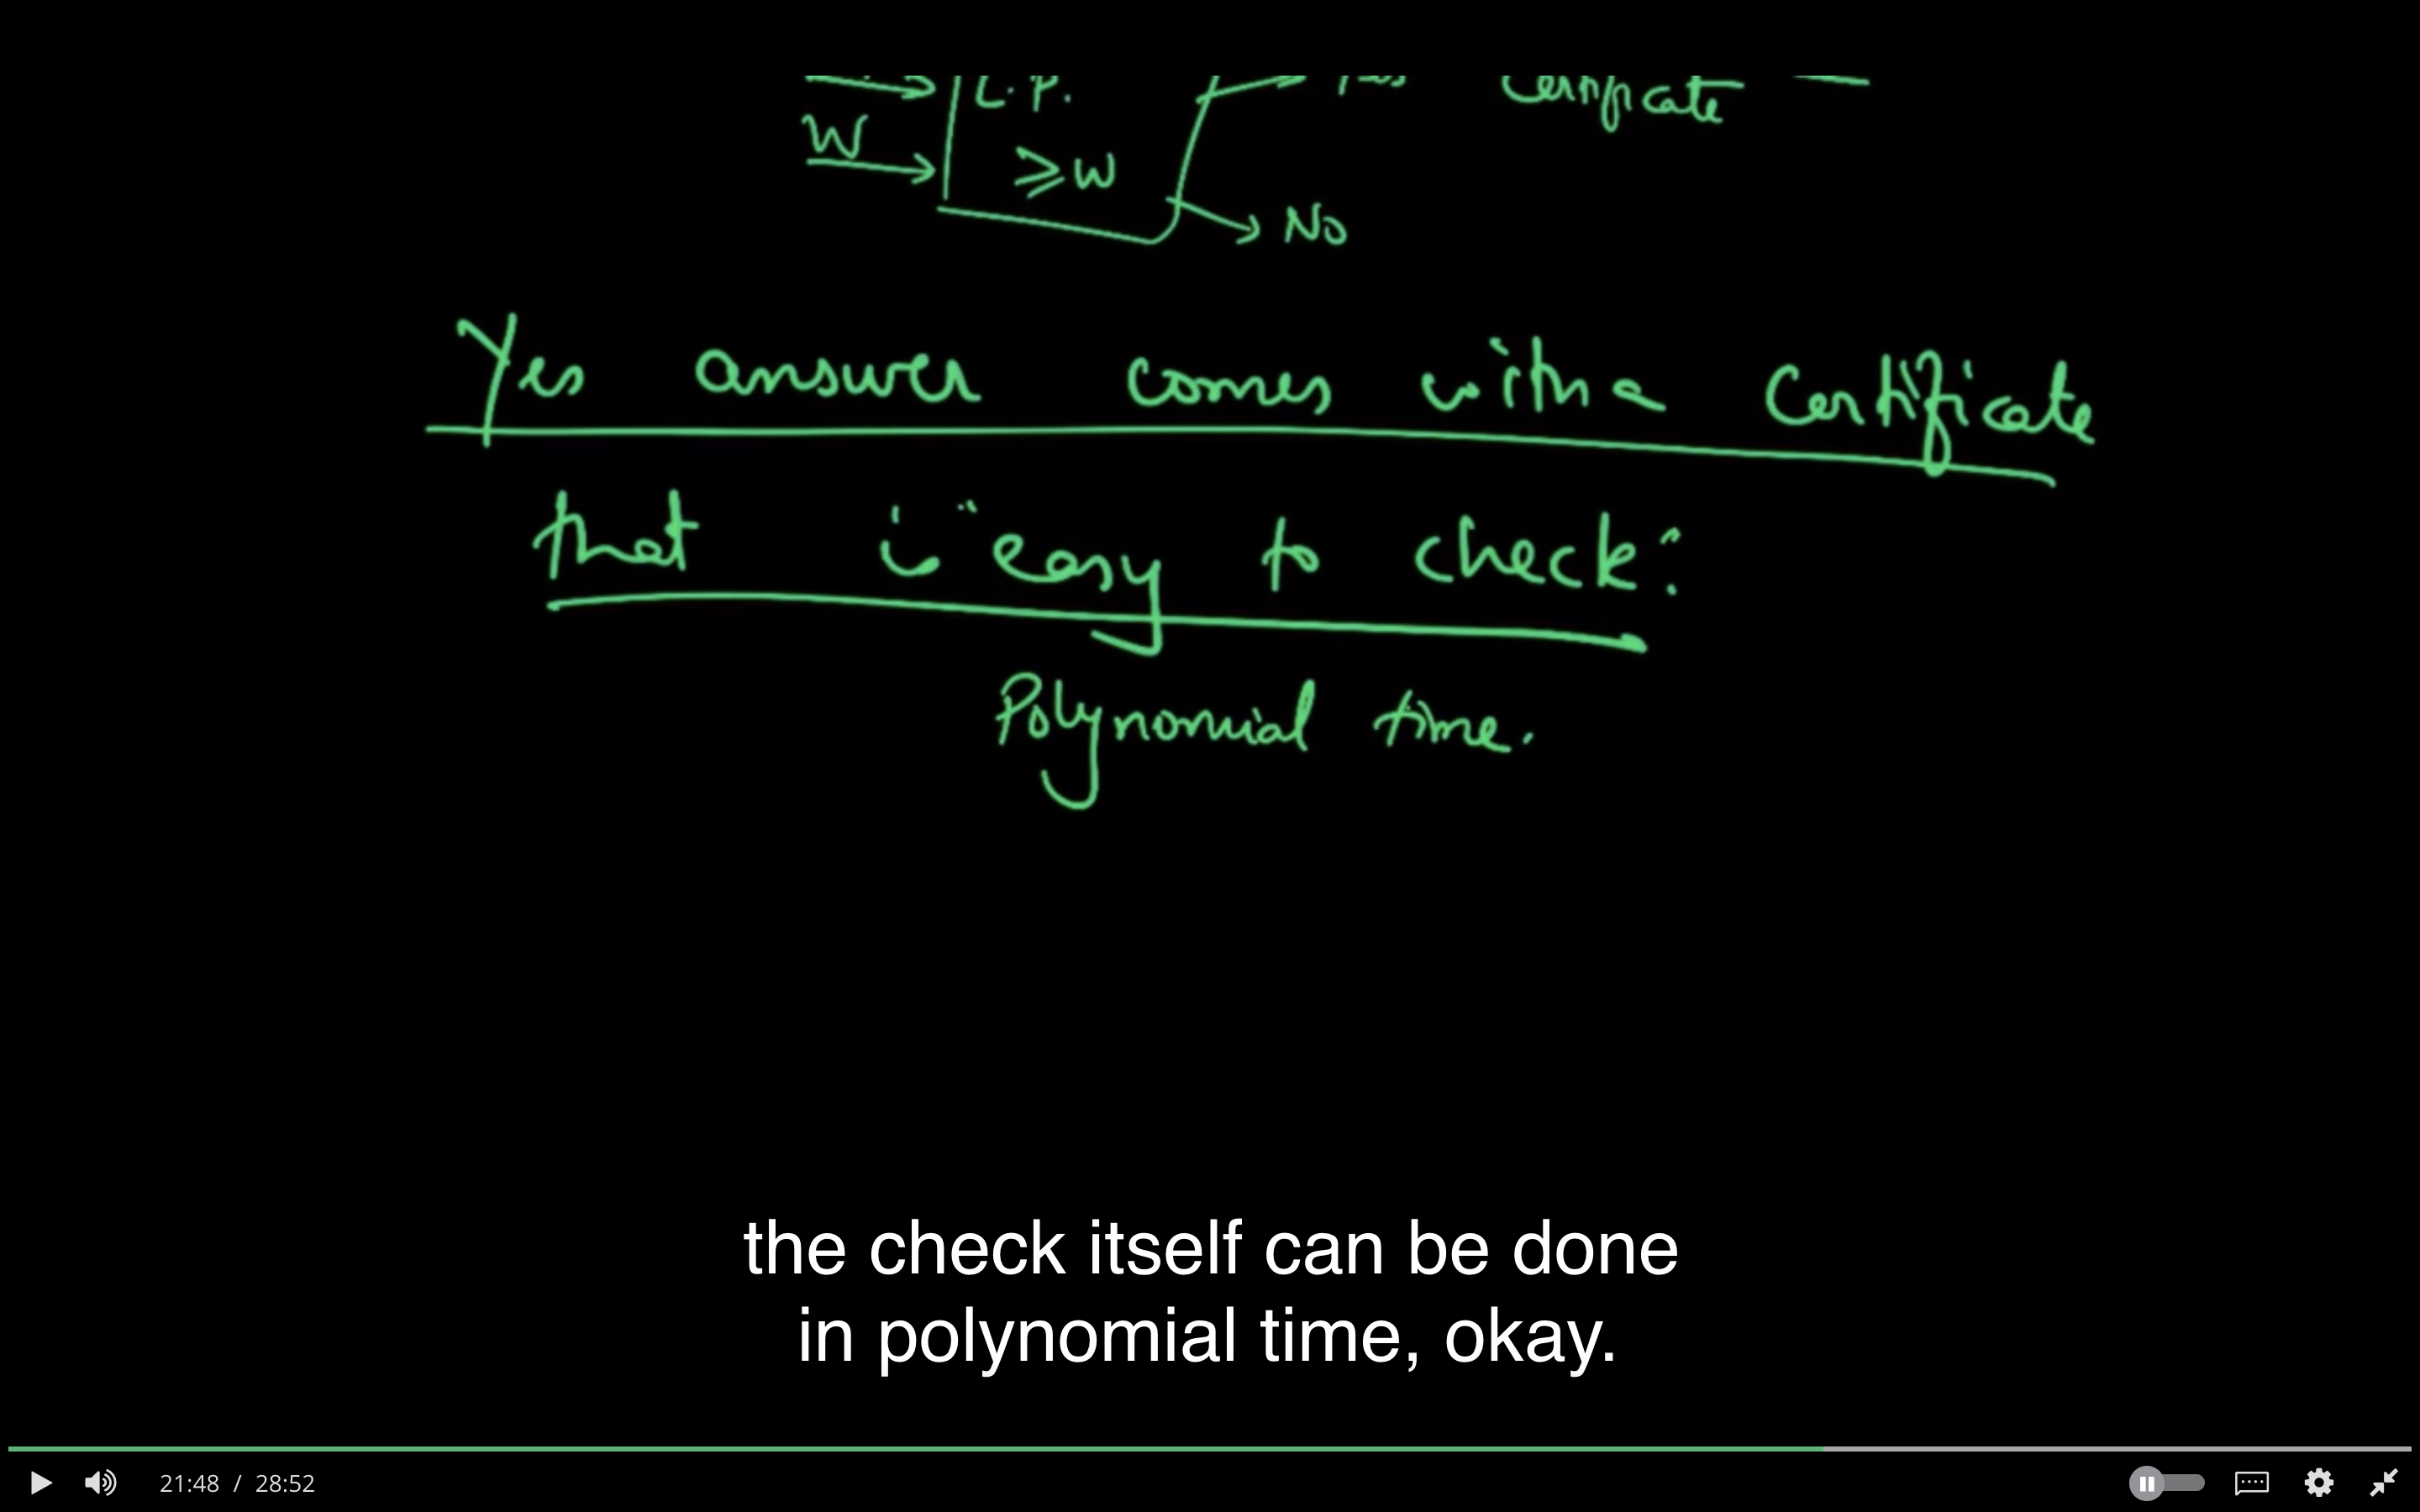 L.P.
Certificate
W
≥ W
No
Yes answer comes with a Certificate
that is easy to check:
Polynomial time.
the check itself can be done
in polynomial time, okay.
21:48 / 28:52